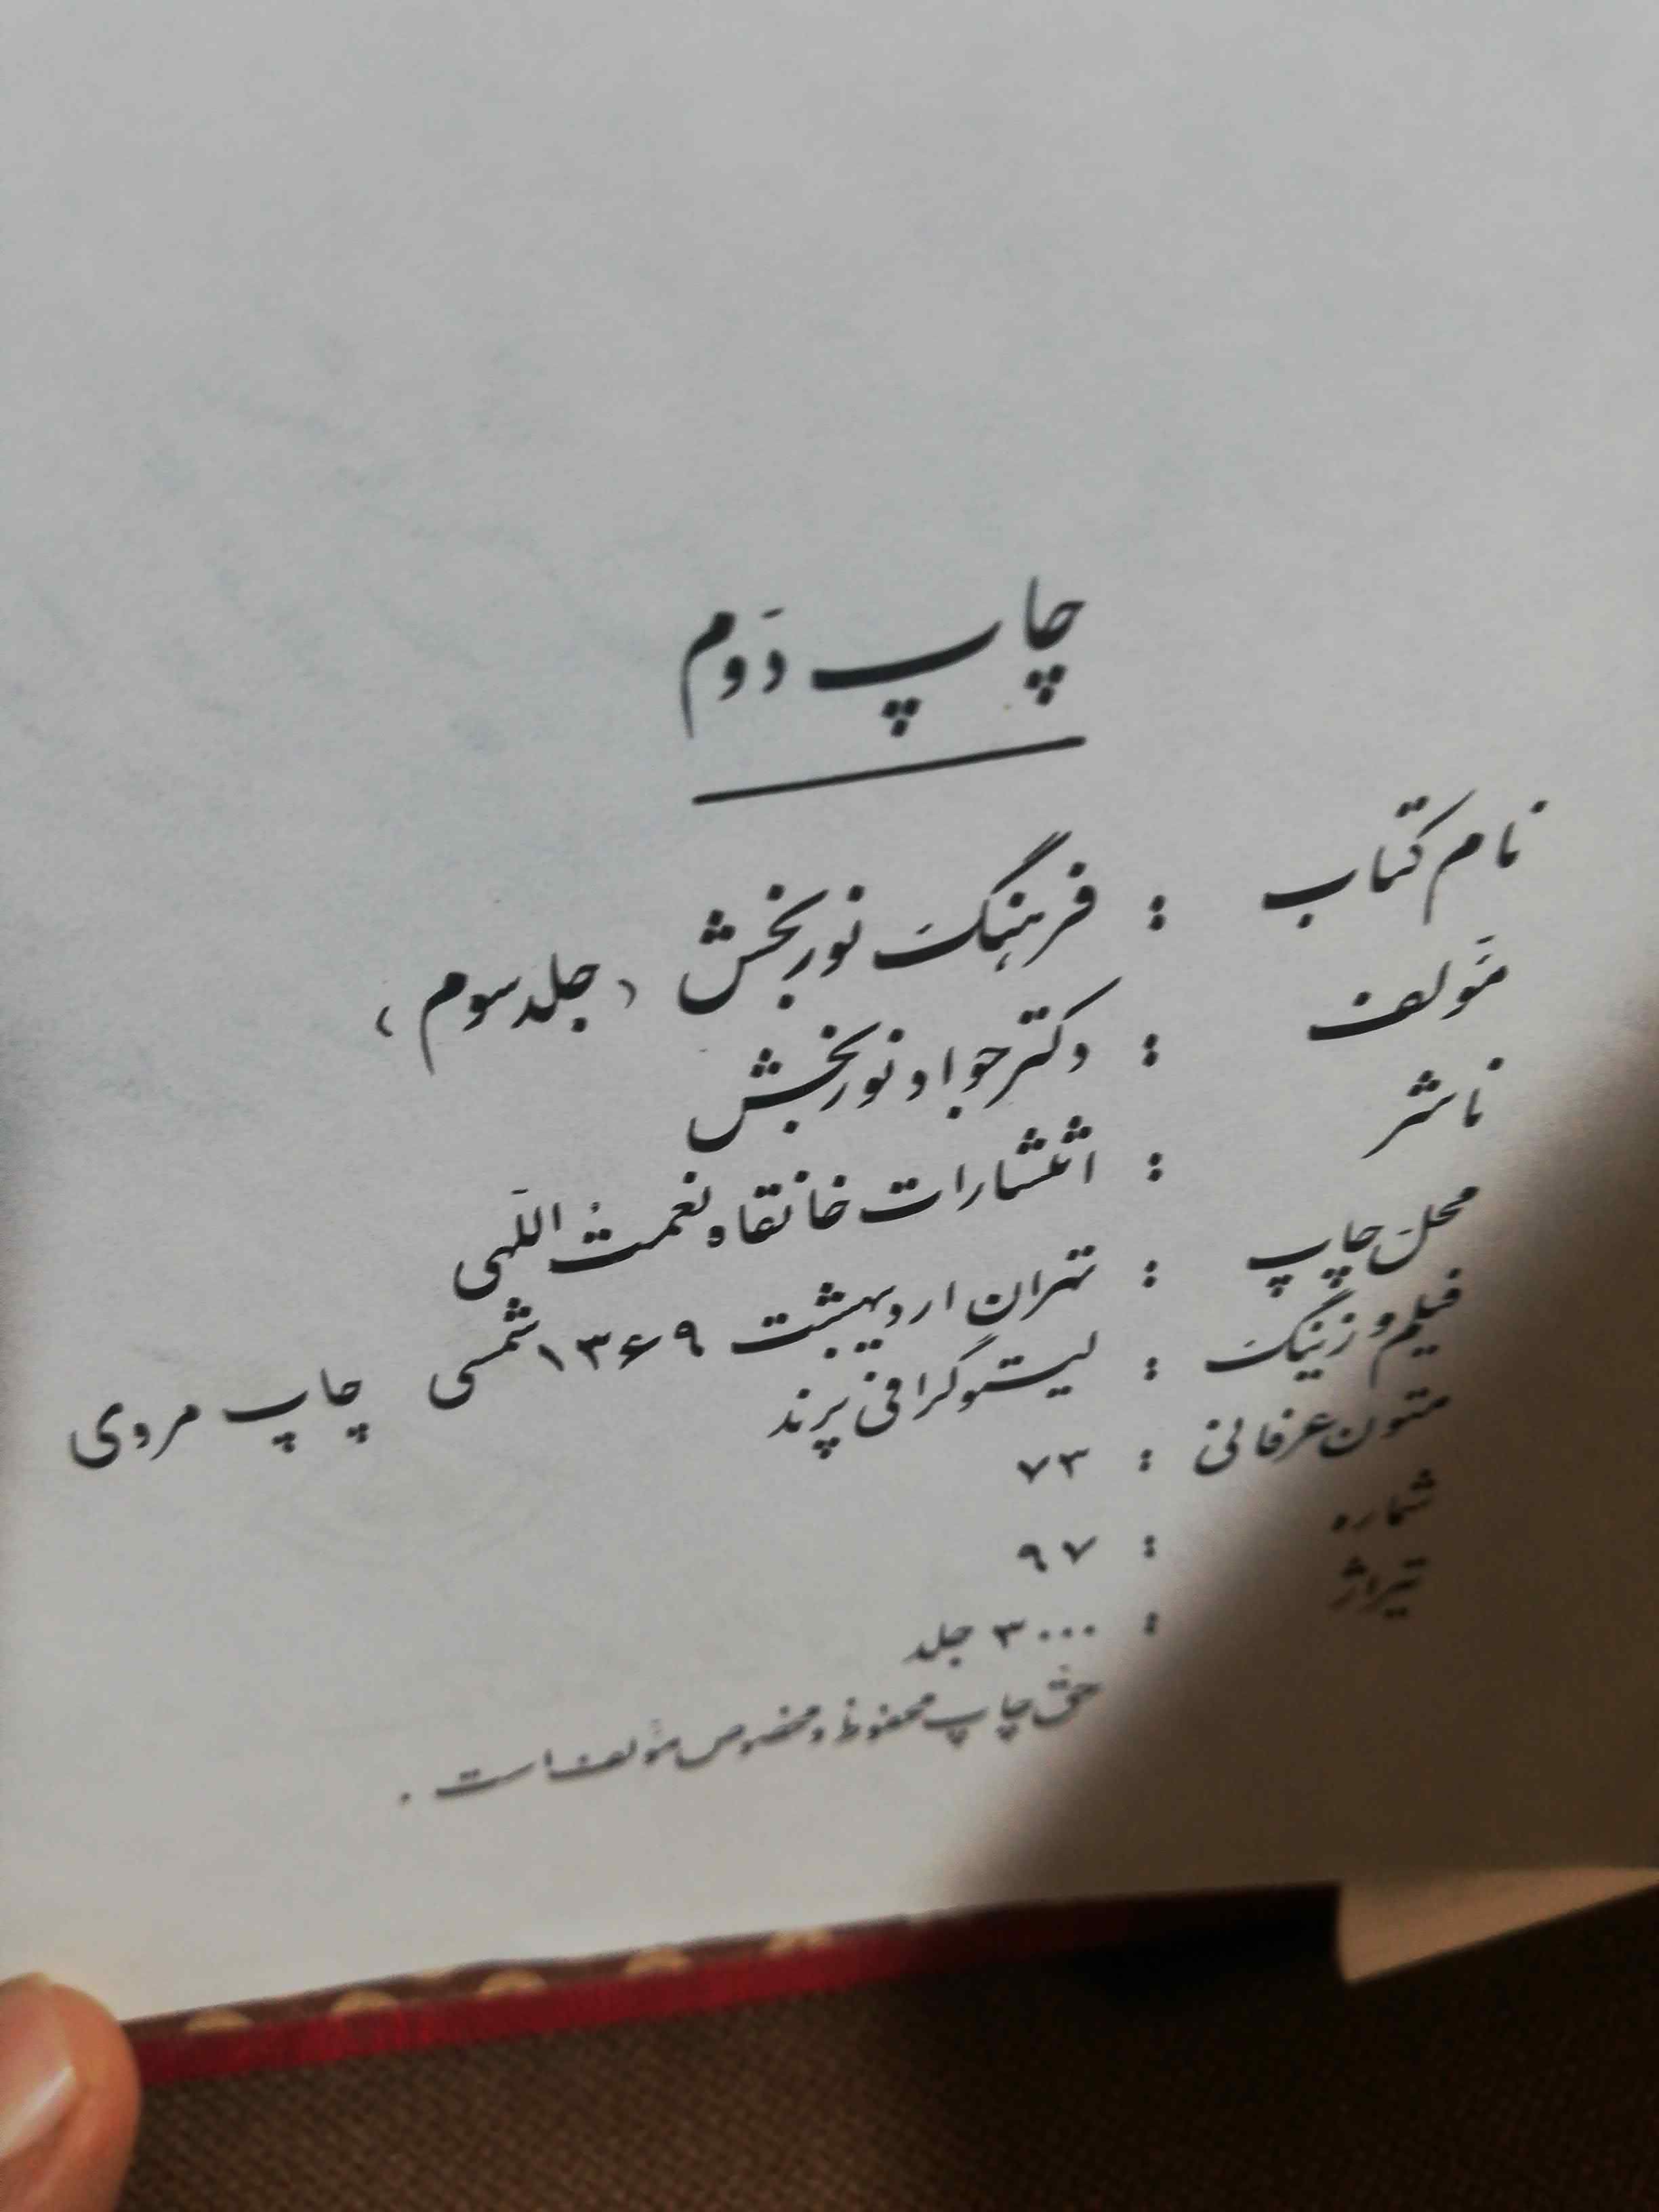 چاپ دوم
نام کتاب : فرهنگ نوربخش «جلد سوم»
مؤلف : دکتر جواد نوربخش
ناشر : انتشارات خانقاه نعمت اللهی
محل چاپ : تهران اردیبهشت ۱۳۶۹ شمسی چاپ مروی
فیلم و زینک : لیتوگرافی پرند
متون عرفانی : ۷۳
شماره : ۹۷
تیراژ : ۳۰۰۰ جلد
حق چاپ محفوظ و مخصوص مؤلف است .